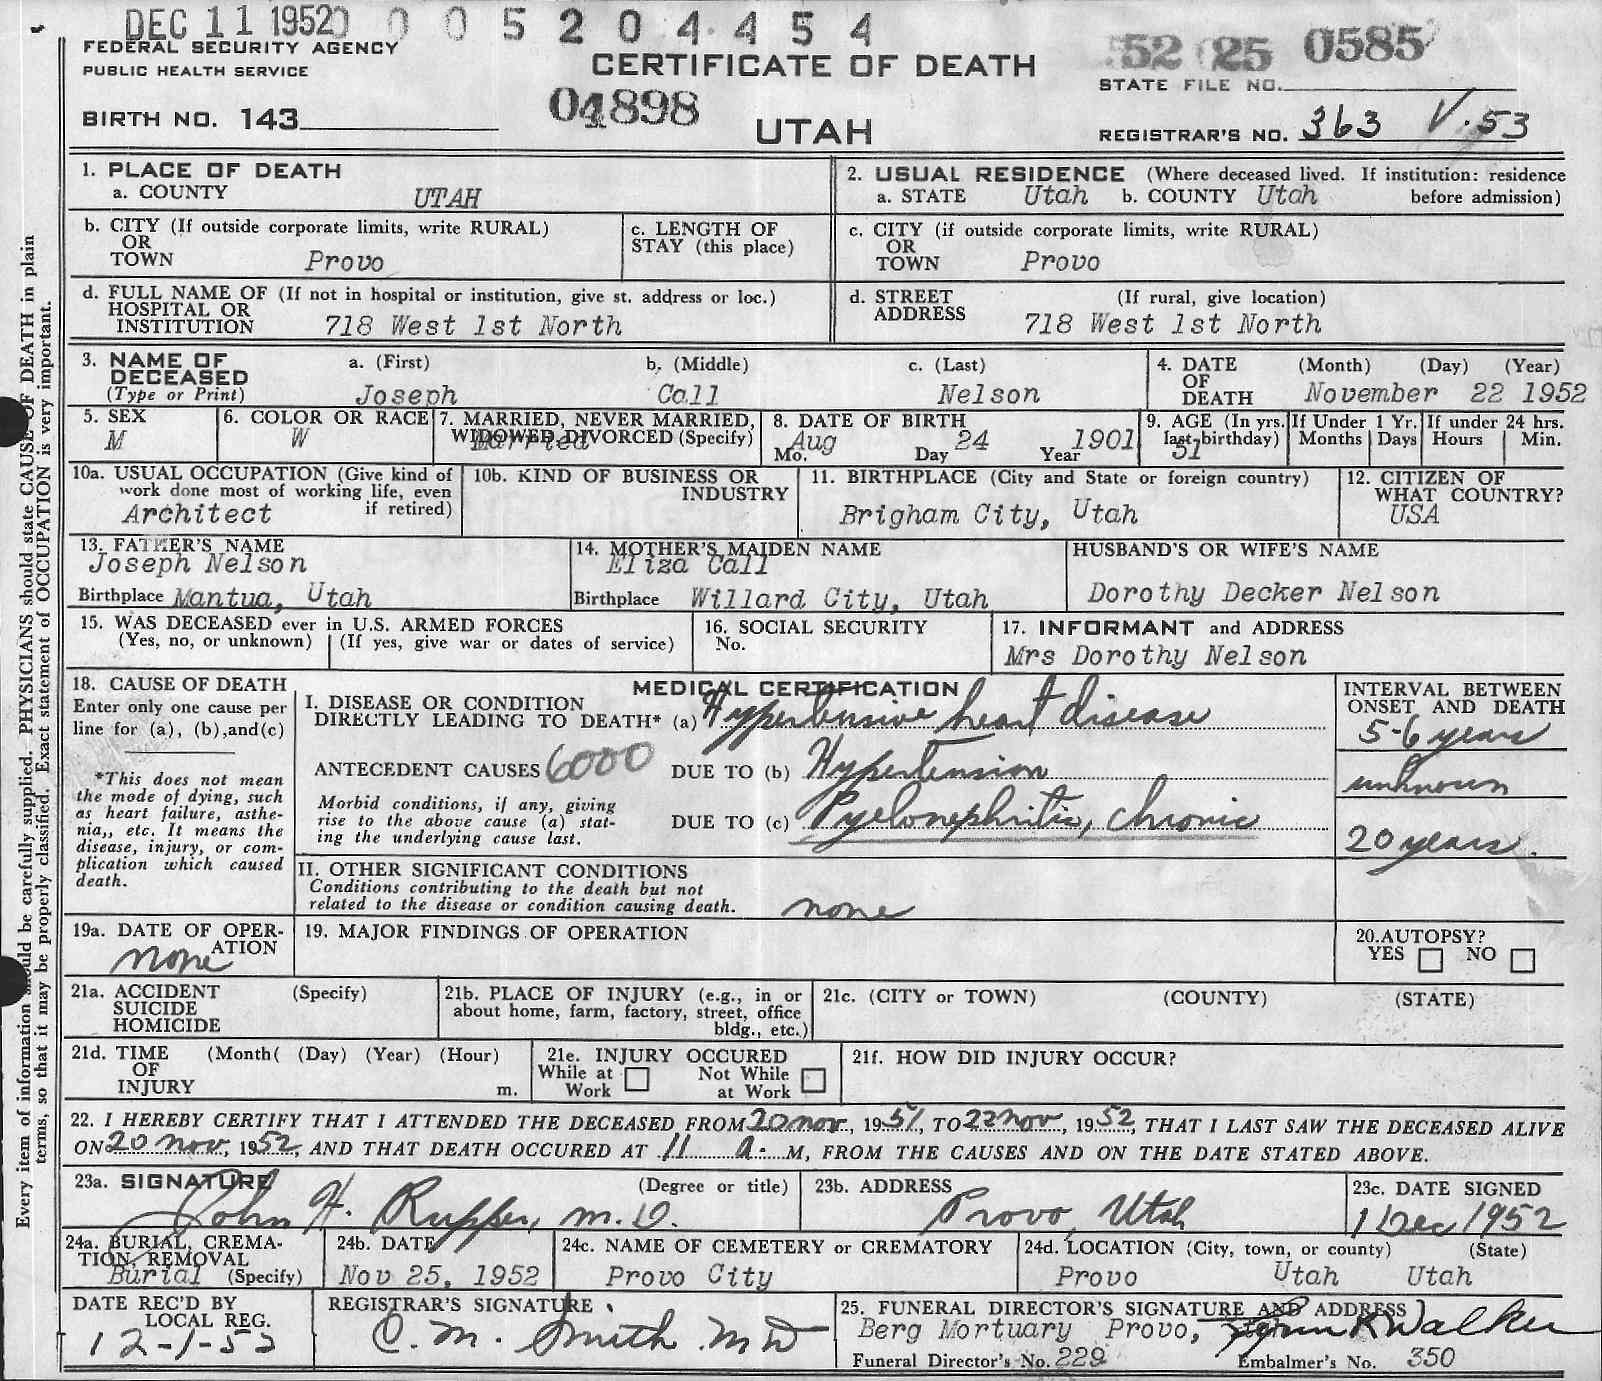 DEC 11 1952 0 0 5 2 0 4 4 5 4
FEDERAL SECURITY AGENCY
PUBLIC HEALTH SERVICE
CERTIFICATE OF DEATH
52 25 0585
STATE FILE NO.
BIRTH NO. 143
04898
UTAH
REGISTRAR'S NO. 363 V.53
1. PLACE OF DEATH
a. COUNTY UTAH
2. USUAL RESIDENCE (Where deceased lived. If institution: residence
a. STATE Utah b. COUNTY Utah before admission)
b. CITY (If outside corporate limits, write RURAL)
OR
TOWN Provo
c. LENGTH OF
STAY (this place)
c. CITY (if outside corporate limits, write RURAL)
OR
TOWN Provo
d. FULL NAME OF (If not in hospital or institution, give st. address or loc.)
HOSPITAL OR
INSTITUTION 718 West 1st North
d. STREET (If rural, give location)
ADDRESS 718 West 1st North
3. NAME OF DECEASED
(Type or Print)
a. (First) b. (Middle) c. (Last)
Joseph Call Nelson
4. DATE (Month) (Day) (Year)
OF
DEATH November 22 1952
5. SEX
M
6. COLOR OR RACE
W
7. MARRIED, NEVER MARRIED,
WIDOWED, DIVORCED (Specify)
Married
8. DATE OF BIRTH
Mo. Aug Day 24 Year 1901
9. AGE (In yrs. last birthday)
51
If Under 1 Yr.
Months Days
If under 24 hrs.
Hours Min.
10a. USUAL OCCUPATION (Give kind of
work done most of working life, even
if retired)
Architect
10b. KIND OF BUSINESS OR
INDUSTRY
11. BIRTHPLACE (City and State or foreign country)
Brigham City, Utah
12. CITIZEN OF
WHAT COUNTRY?
USA
13. FATHER'S NAME
Joseph Nelson
Birthplace Mantua, Utah
14. MOTHER'S MAIDEN NAME
Eliza Call
Birthplace Willard City, Utah
HUSBAND'S OR WIFE'S NAME
Dorothy Decker Nelson
15. WAS DECEASED ever in U.S. ARMED FORCES
(Yes, no, or unknown) (If yes, give war or dates of service)
16. SOCIAL SECURITY
No.
17. INFORMANT and ADDRESS
Mrs Dorothy Nelson
18. CAUSE OF DEATH
Enter only one cause per
line for (a), (b),and(c)
*This does not mean
the mode of dying, such
as heart failure, asthe-
nia,, etc. It means the
disease, injury, or com-
plication which caused
death.
MEDICAL CERTIFICATION
I. DISEASE OR CONDITION
DIRECTLY LEADING TO DEATH* (a) Hypertensive heart disease
ANTECEDENT CAUSES 6000 DUE TO (b) Hypertension
Morbid conditions, if any, giving
rise to the above cause (a) stat-
ing the underlying cause last.
DUE TO (c) Pyelonephritis, chronic
INTERVAL BETWEEN
ONSET AND DEATH
5-6 years
unknown
20 years.
II. OTHER SIGNIFICANT CONDITIONS
Conditions contributing to the death but not
related to the disease or condition causing death. none
19a. DATE OF OPER-
ATION
none
19. MAJOR FINDINGS OF OPERATION
20.AUTOPSY?
YES NO
21a. ACCIDENT (Specify)
SUICIDE
HOMICIDE
21b. PLACE OF INJURY (e.g., in or
about home, farm, factory, street, office
bldg., etc.)
21c. (CITY or TOWN) (COUNTY) (STATE)
21d. TIME (Month( (Day) (Year) (Hour)
OF
INJURY m.
21e. INJURY OCCURED
While at Not While
Work at Work
21f. HOW DID INJURY OCCUR?
22. I HEREBY CERTIFY THAT I ATTENDED THE DECEASED FROM 20 nov., 1951, TO 22 nov, 1952, THAT I LAST SAW THE DECEASED ALIVE
ON 20 nov, 1952, AND THAT DEATH OCCURED AT 11 a. M, FROM THE CAUSES AND ON THE DATE STATED ABOVE.
23a. SIGNATURE (Degree or title)
John H. Rupper, M.D.
23b. ADDRESS
Provo, Utah
23c. DATE SIGNED
1 Dec 1952
24a. BURIAL, CREMA-
TION, REMOVAL
Burial (Specify)
24b. DATE
Nov 25, 1952
24c. NAME OF CEMETERY or CREMATORY
Provo City
24d. LOCATION (City, town, or county) (State)
Provo Utah Utah
DATE REC'D BY
LOCAL REG.
12-1-52
REGISTRAR'S SIGNATURE
C. M. Smith M D
25. FUNERAL DIRECTOR'S SIGNATURE AND ADDRESS
Berg Mortuary Provo, K Walker
Funeral Director's No. 229 Embalmer's No. 350
Every item of information should be carefully supplied. PHYSICIANS should state CAUSE OF DEATH in plain
terms, so that it may be properly classified. Exact statement of OCCUPATION is very important.